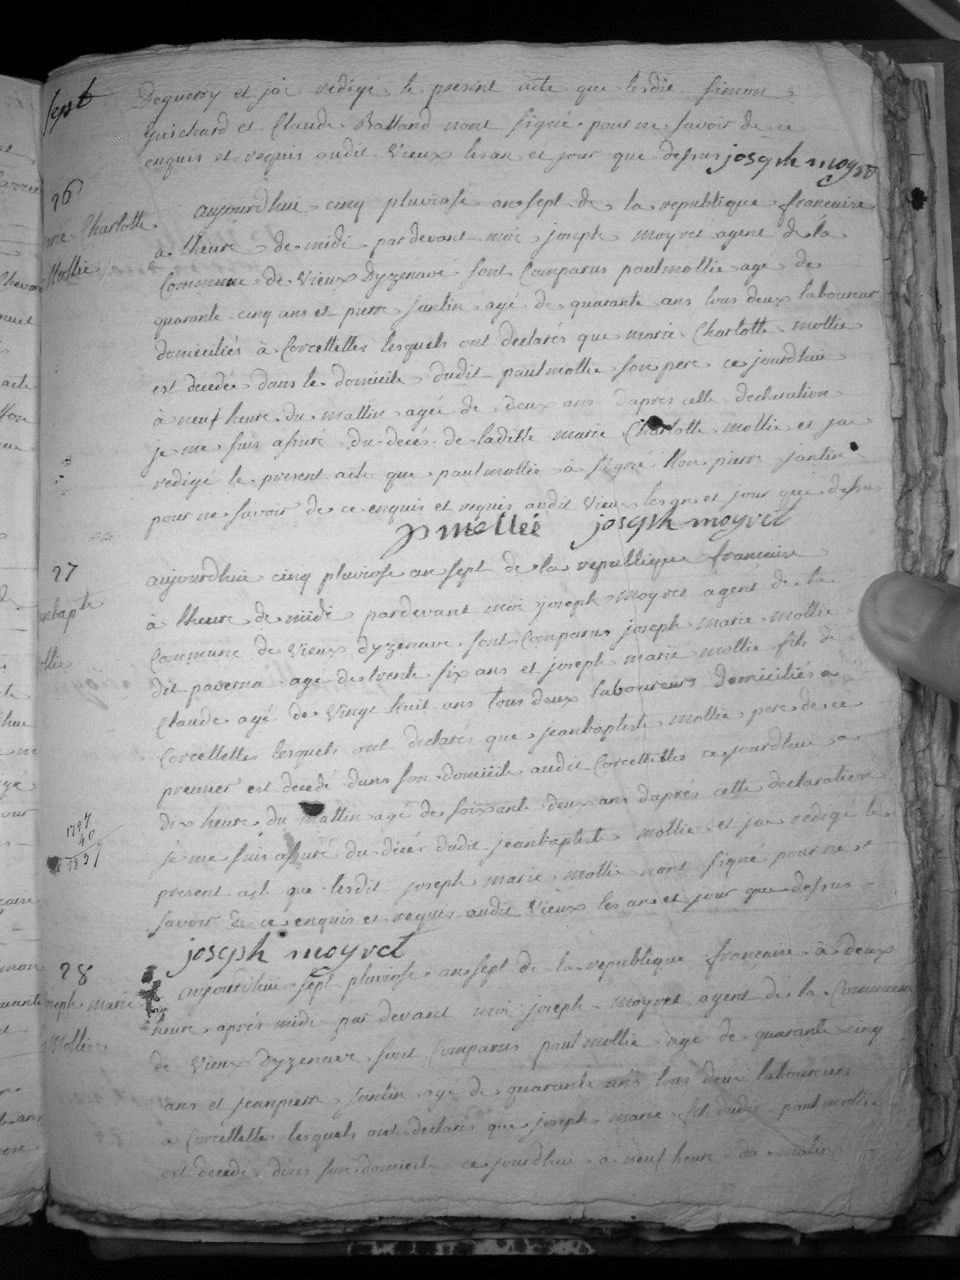 sept
Deguerry et jai redigé le present acte que lesdit simon
Guichard et Claude Balland nont signé pour ne savoir de ce
enquis et requis audit Vieux lesan et jour que dessus joseph moyret
26
Charlotte
Mollie
aujourdhui cinq pluviose an sept de la republique francaise
a lheure de midi pardevant moi joseph moyret agent de la
Commune de Vieux Dyzenave sont Comparus paul mollie age de
quarante cinq ans et pierre jantin age de quarante ans tous deux laboureur
domiciliés à Corcettelles lesquels ont declarés que marie Charlotte mollie
est décedé dans le domicile dudit paul mollie son pere ce jourdhui
à neuf heure du mattin agée de deux ans dapres cette declaration
je me suis assuré du decés de laditte marie Charlotte mollie et jai
redigé le present acte que paul mollie à signé Non pierre jantin
pour ne savoir de ce enquis et requis audit Vieux les an et jour que dessus
p mollié joseph moyret
27
aujourdhui cinq pluviose an sept de la republique francaise
à lheure de midi pardevant moi joseph moyret agent de la
Commune de Vieux dyzenave sont Comparus joseph marie mollie
dit paverna age de trente six ans et joseph marie mollie fils de
Claude agé de Vingt huit ans tous deux laboureurs Domiciliés a
Corcellettes lesquels ont declarés que jeanbaptiste mollie pere de ce
premier est decedé dans son domicile audit Corcettelles ce jourdhui a
dix heure du mattin agé de soixante deux ans daprés cette declaration
je me suis assuré du décés dudit jeanbaptiste mollie et jai redigé le
present acte que lesdit joseph marie mollie nont signé pour ne
savoir de ce enquis et requis audit Vieux les an et jour que dessus
1797
40
1837
joseph moyret
28
joseph marie
Mollie
aujourdhui sept pluviose an sept de la republique francaise à deux
heure aprés midi par devant moi joseph moyret agent de la Commune
de Vieux Dyzenave sont Comparus paul mollie age de quarante cinq
ans et jeanpierre jantin age de quarante ans tous deux laboureurs
a Corcellettes lesquels ont declarés que joseph marie fils dudit paul mollie
est decedé dans son domicile ce jourdhui a neuf heure du matin